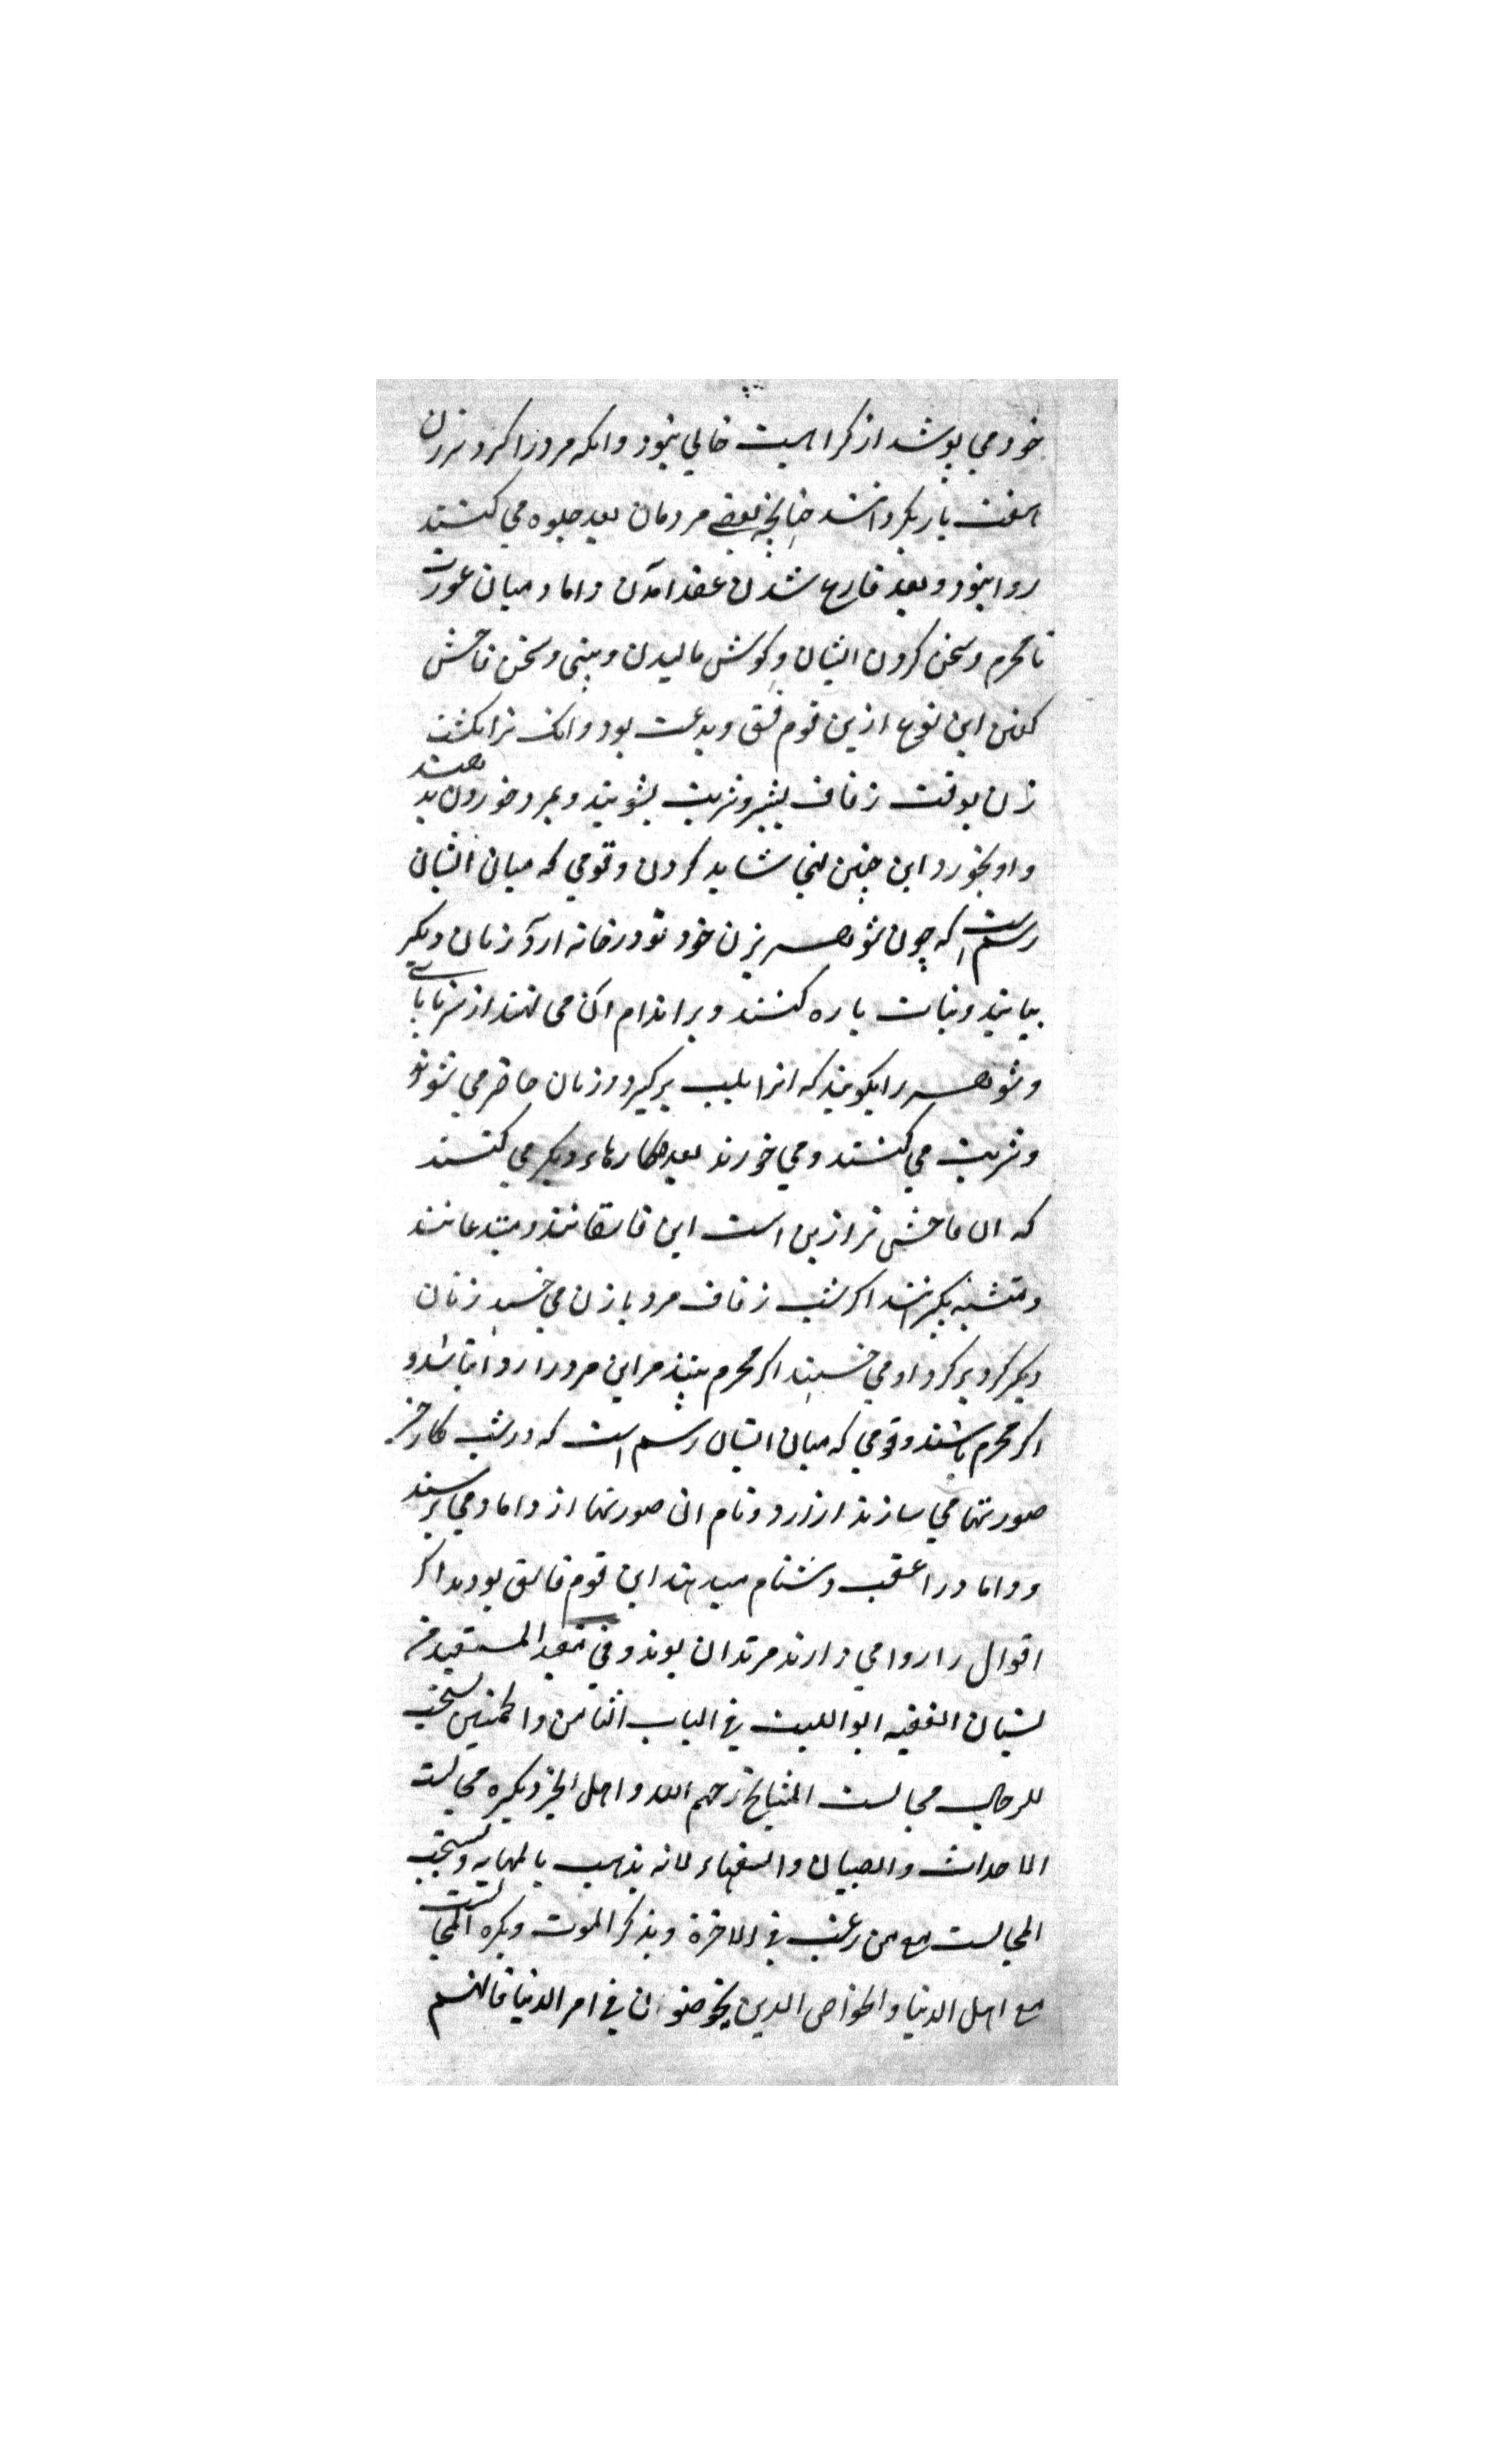 خود می پوشد از کراهیت خالی نبود وانکه مرد را کرد بر زن
هفت بار بکردانند چنانچه بعضی مردمان بعد جلوه می کنند
روا نبود و بعد فارغ شدن عقد آمدن داماد میان عورت
نامحرم و سخن کردن ایشان و کوش مالیدن و بینی و سخن فاحش
کفتن این نوع ازین قوم فسق و بدعت بود وانک نر انکشت
زن بوقت زفاف بشیر و شربت بشویند و بمرد خوردن بدهند
و او بخورد این چنین نمی شاید کردن و قومی که میان ایشان
رسم است که چون شوهر بزن خود تو در خانه آرد زنان دیکر
بیایند و نبات پاره کنند و بر اندام آن می نهند از سر تا پای
و شوهر را بکویند که آنرا بلب برکیرد و زنان حاضر می شوند
و شربت می کنند و می خورند بعد کارهاء دیکر می کنند
که آن فاحش تر ازین است این فاسقانند و مبتدعانند
و متشبه بکبرانند اکر شب زفاف مرد با زن می خسبد زنان
دیکر کرد بر کرد او می خسبند اکر محرم نیند مر این مرد را روا نباشد و
اکر محرم باشند و قومی که میان ایشان رسم است که در شب کار خیر
صورتها می سازند از آرد و نام آن صورتها از داماد می پرسند
و داماد را عقب دشنام میدهند این قوم فاسق بودند اکر
اقوال را روا می دارند مرتدان بوند و فی مفید المستفید من
بستان الفقیه ابو اللیث فی الباب الثامن والخمسین یستحب
للرجل مجالست المشایخ رحمهم الله و اهل الخیر و یکره مجالست
الاحداث والصبیان والسفهاء لانه یذهب بالمهابه و یستحب
المجالست مع من رغب فی الاخرة و یذکر الموت و یکره المجالست
مع اهل الدنیا والخواص الذین یخوضون فی امر الدنیا فانهم